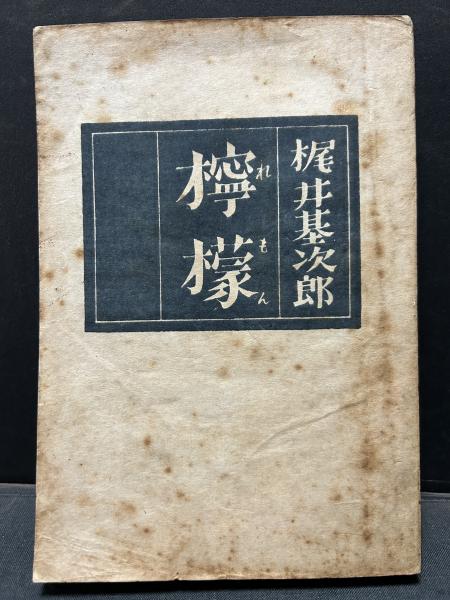 梶井基次郎
檸檬
れもん